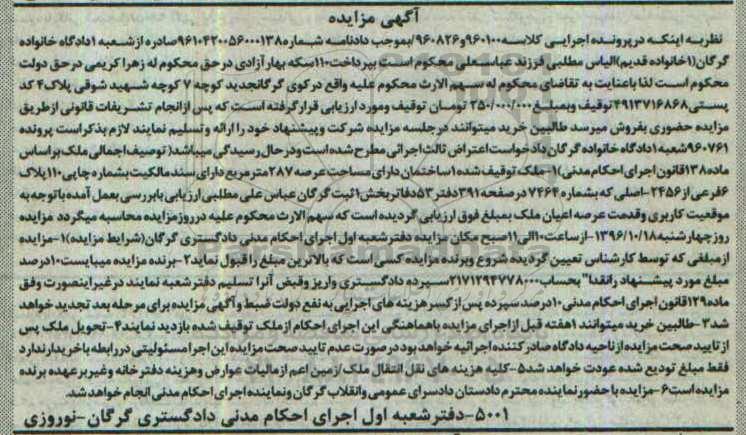 آگهی مزایده
نظربه اینکه درپرونده اجرایی کلاسه ۹۶۰۱۰۰و۹۶۰۸۲۶/بموجب دادنامه شماره۹۶۱۰۴۲۰۰۵۶۰۰۰۱۳۸صادره ازشعبه ۱دادگاه خانواده
گرگان(۱خانواده قدیم)الیاس مطلبی فرزند عباسعلی محکوم است بپرداخت۱۱۰سکه بهارآزادی درحق محکوم له زهرا کریمی درحق دولت
محکوم است لذا باعنایت به تقاضای محکوم له سهم الارث محکوم علیه واقع درکوی گرگانجدید کوچه ۷ کوچه شهید شوقی پلاک۴ کد
پستی۴۹۱۳۷۱۶۸۶۸توقیف وبمبلغ۲۵۰/۰۰۰/۰۰۰ تومان توقیف ومورد ارزیابی قرارگرفته است که پس ازانجام تشریفات قانونی ازطریق
مزایده حضوری بفروش میرسد طالبین خرید میتوانند درجلسه مزایده شرکت وپیشنهاد خود را ارائه وتسلیم نمایند لازم بذکراست پرونده
۹۶۰۷۶۱شعبه ۱دادگاه خانواده گرگان دادخواست اعتراض ثالث اجرائی مطرح شده است ودرحال رسیدگی میباشد( توصیف اجمالی ملک براساس
ماده۱۳۸قانون اجرای احکام مدنی)۱-ملک توقیف شده۱ساختمان دارای مساحت عرصه ۲۸۷مترمربع دارای سند مالکیت بشماره چاپی۱۱۰پلاک
۶فرعی از۲۴۵۶-اصلی که بشماره ۷۴۶۴ درصفحه ۳۹۱دفتر۵۳دفاتربخش۱ثبت گرگان عباس علی مطلبی ارزیابی بابررسی بعمل آمده باتوجه به
موقعیت کاربری وقدمت عرصه اعیان ملک بمبلغ فوق ارزیابی گردیده است که سهم الارث محکوم علیه درروزمزایده محاسبه میگردد مزایده
روزچهارشنبه۱۳۹۶/۱۰/۱۸-ازساعت۱۰الی۱۱صبح مکان مزایده دفترشعبه اول اجرای احکام مدنی دادگستری گرگان(شرایط مزایده)۱-مزایده
ازمبلغی که توسط کارشناس تعیین گردیده شروع وبرنده مزایده کسی است که بالاترین مبلغ راقبول نماید۲-برنده مزایده میبایست۱۰درصد
مبلغ مورد پیشنهاد رانقدا" بحساب۲۱۷۱۲۹۴۷۷۸۰۰۰سپرده دادگستری واریز وقبض آنرا تسلیم دفترشعبه نمایند درغیراینصورت وفق
ماده۱۲۹قانون اجرای احکام مدنی۱۰درصد سپرده پس ازکسرهزینه های اجرایی به نفع دولت ضبط وآگهی مزایده برای مرحله بعد تجدید خواهد
شد۳-طالبین خرید میتوانند ۱هفته قبل ازاجرای مزایده باهماهنگی این اجرای احکام ازملک توقیف شده بازدید نمایند۴-تحویل ملک پس
از تایید صحت مزایده ازناحیه دادگاه صادرکننده اجرائیه خواهد بود درصورت عدم تایید صحت مزایده این اجرا مسئولیتی دررابطه باخریدارندارد
فقط مبلغ تودیع شده عودت خواهد شد۵-کلیه هزینه های نقل انتقال ملک/زمین اعم ازمالیات عوارض وهزینه دفترخانه وغیربرعهده برنده
مزایده است۶-مزایده باحضورنماینده محترم دادستان دادسرای عمومی وانقلاب گرگان ونماینده اجرای احکام مدنی انجام خواهدشد.
۵۰۰۱-دفترشعبه اول اجرای احکام مدنی دادگستری گرگان-نوروزی